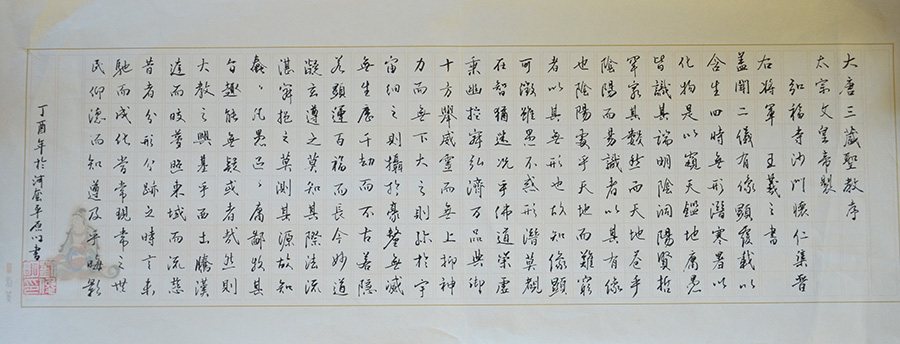 大唐三藏聖教序
太宗文皇帝製
弘福寺沙門懷仁集晉
右將軍王羲之書
蓋聞二儀有像顯覆載以
含生四時無形潛寒暑以
化物是以窺天鑑地庸愚
皆識其端明陰洞陽賢哲
罕窮其數然而天地苞乎
陰陽而易識者以其有像
也陰陽處乎天地而難窮
者以其無形也故知像顯
可徵雖愚不惑形潛莫覩
在智猶迷況乎佛道崇虛
乘幽控寂弘濟万品典御
十方舉威靈而無上抑神
力而無下大之則弥於宇
宙細之則攝於豪釐無滅
無生歷千劫而不古若隱
若顯運百福而長今妙道
凝玄遵之莫知其際法流
湛寂挹之莫測其源故知
蠢々凡愚區々庸鄙投其
旨趣能無疑惑者哉然則
大教之興基乎西土騰漢
庭而皎夢照東域而流慈
昔者分形分跡之時言未
馳而成化當常現常之世
民仰德而知遵及乎晦影
丁酉年於河套平原書